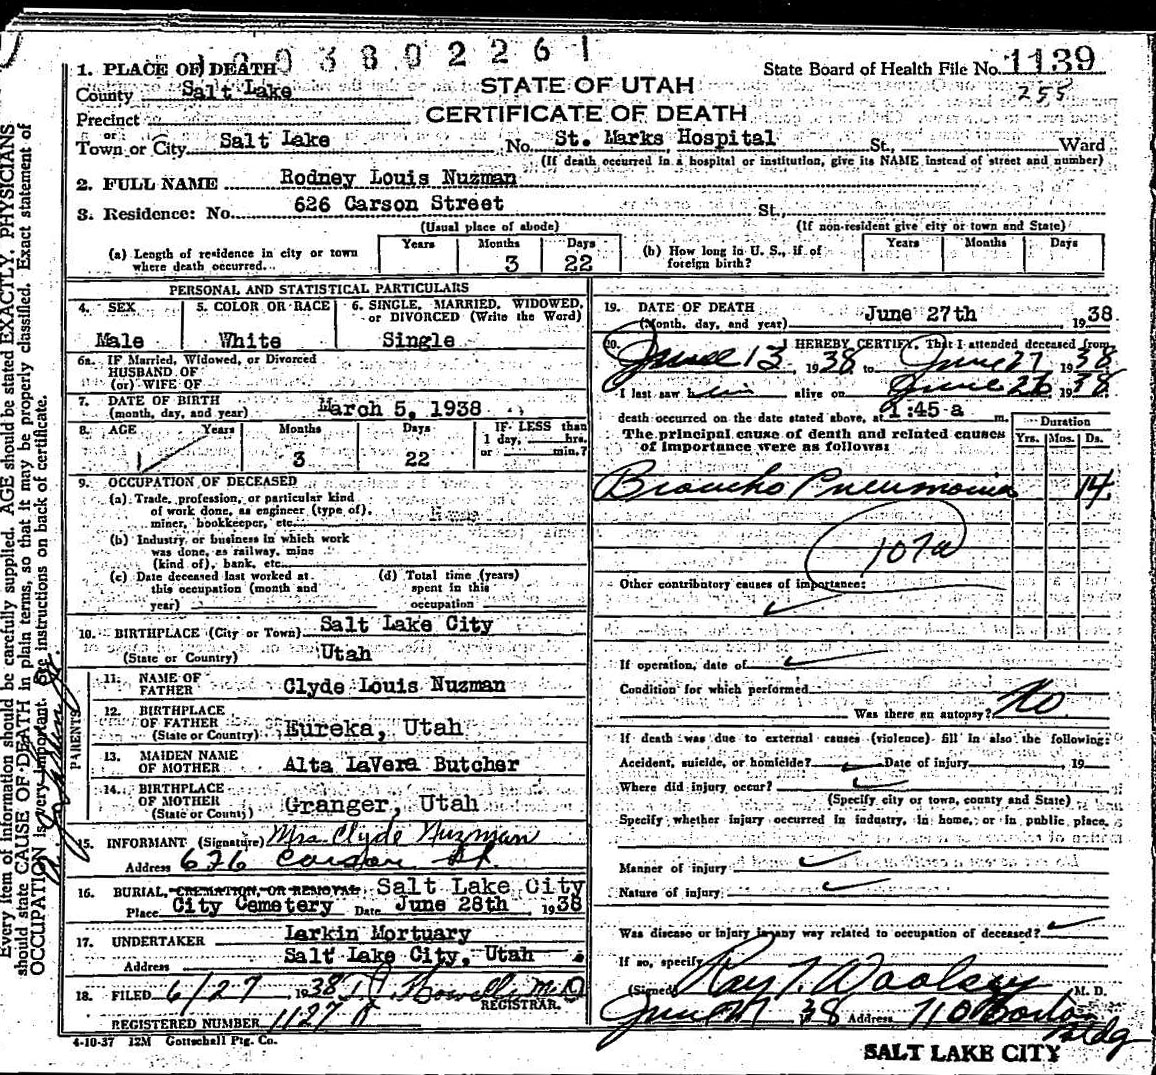 1. PLACE OF DEATH
State Board of Health File No. 1139
255
County Salt Lake
STATE OF UTAH
CERTIFICATE OF DEATH
Precinct
or
Town or City Salt Lake No. St. Marks Hospital St., Ward
(If death occurred in a hospital or institution, give its NAME instead of street and number)
2. FULL NAME Rodney Louis Nuzman
3. Residence: No. 626 Carson Street St.,
(Usual place of abode) (If non-resident give city or town and State)
(a) Length of residence in city or town where death occurred... Years Months 3 Days 22
(b) How long in U. S., if of foreign birth? Years Months Days
PERSONAL AND STATISTICAL PARTICULARS
4. SEX Male
5. COLOR OR RACE White
6. SINGLE, MARRIED, WIDOWED, or DIVORCED (Write the Word) Single
6a. IF Married, Widowed, or Divorced
HUSBAND OF
(or) WIFE OF
7. DATE OF BIRTH
(month, day, and year) March 5, 1938
8. AGE Years Months 3 Days 22 IF LESS than 1 day, hrs. or min.?
9. OCCUPATION OF DECEASED
(a) Trade, profession, or particular kind
of work done, as engineer (type of),
miner, bookkeeper, etc.
(b) Industry or business in which work
was done, as railway, mine
(kind of), bank, etc.
(c) Date deceased last worked at
this occupation (month and
year)
(d) Total time (years)
spent in this
occupation
10. BIRTHPLACE (City or Town) Salt Lake City
(State or Country) Utah
PARENTS
11. NAME OF FATHER Clyde Louis Nuzman
12. BIRTHPLACE OF FATHER
(State or Country) Eureka, Utah
13. MAIDEN NAME OF MOTHER Alta LaVera Butcher
14. BIRTHPLACE OF MOTHER
(State or County) Granger, Utah
15. INFORMANT (Signature) Mrs. Clyde Nuzman
Address 626 Carson St
16. BURIAL, CREMATION, OR REMOVAL: Salt Lake City
Place City Cemetery Date June 28th 1938
17. UNDERTAKER Larkin Mortuary
Address Salt Lake City, Utah
18. FILED 6/27 1938 M.D.
REGISTRAR.
REGISTERED NUMBER 1127
4-10-37 12M Gottschall Ptg. Co.
19. DATE OF DEATH
(Month, day, and year) June 27th 1938.
20. I HEREBY CERTIFY, That I attended deceased from
June 13, 1938 to June 27 1938
I last saw him alive on June 26 1938
death occurred on the date stated above, at 1:45 a m.
The principal cause of death and related causes
of importance were as follows:
Duration
Yrs. Mos. Ds.
Broncho Pneumonia 14
107a
Other contributory causes of importance:
If operation, date of
Condition for which performed
Was there an autopsy? No
If death was due to external causes (violence) fill in also the following:
Accident, suicide, or homicide? Date of injury 19
Where did injury occur?
(Specify city or town, county and State)
Specify whether injury occurred in industry, in home, or in public place.
Manner of injury
Nature of injury
Was disease or injury in any way related to occupation of deceased?
If so, specify
(Signed) Ray T. Woolsey M. D.
June 27 38 Address 710 Boston Bldg
SALT LAKE CITY
Every item of information should be carefully supplied. AGE should be stated EXACTLY. PHYSICIANS
should state CAUSE OF DEATH in plain terms, so that it may be properly classified. Exact statement of
OCCUPATION is very important. See instructions on back of certificate.